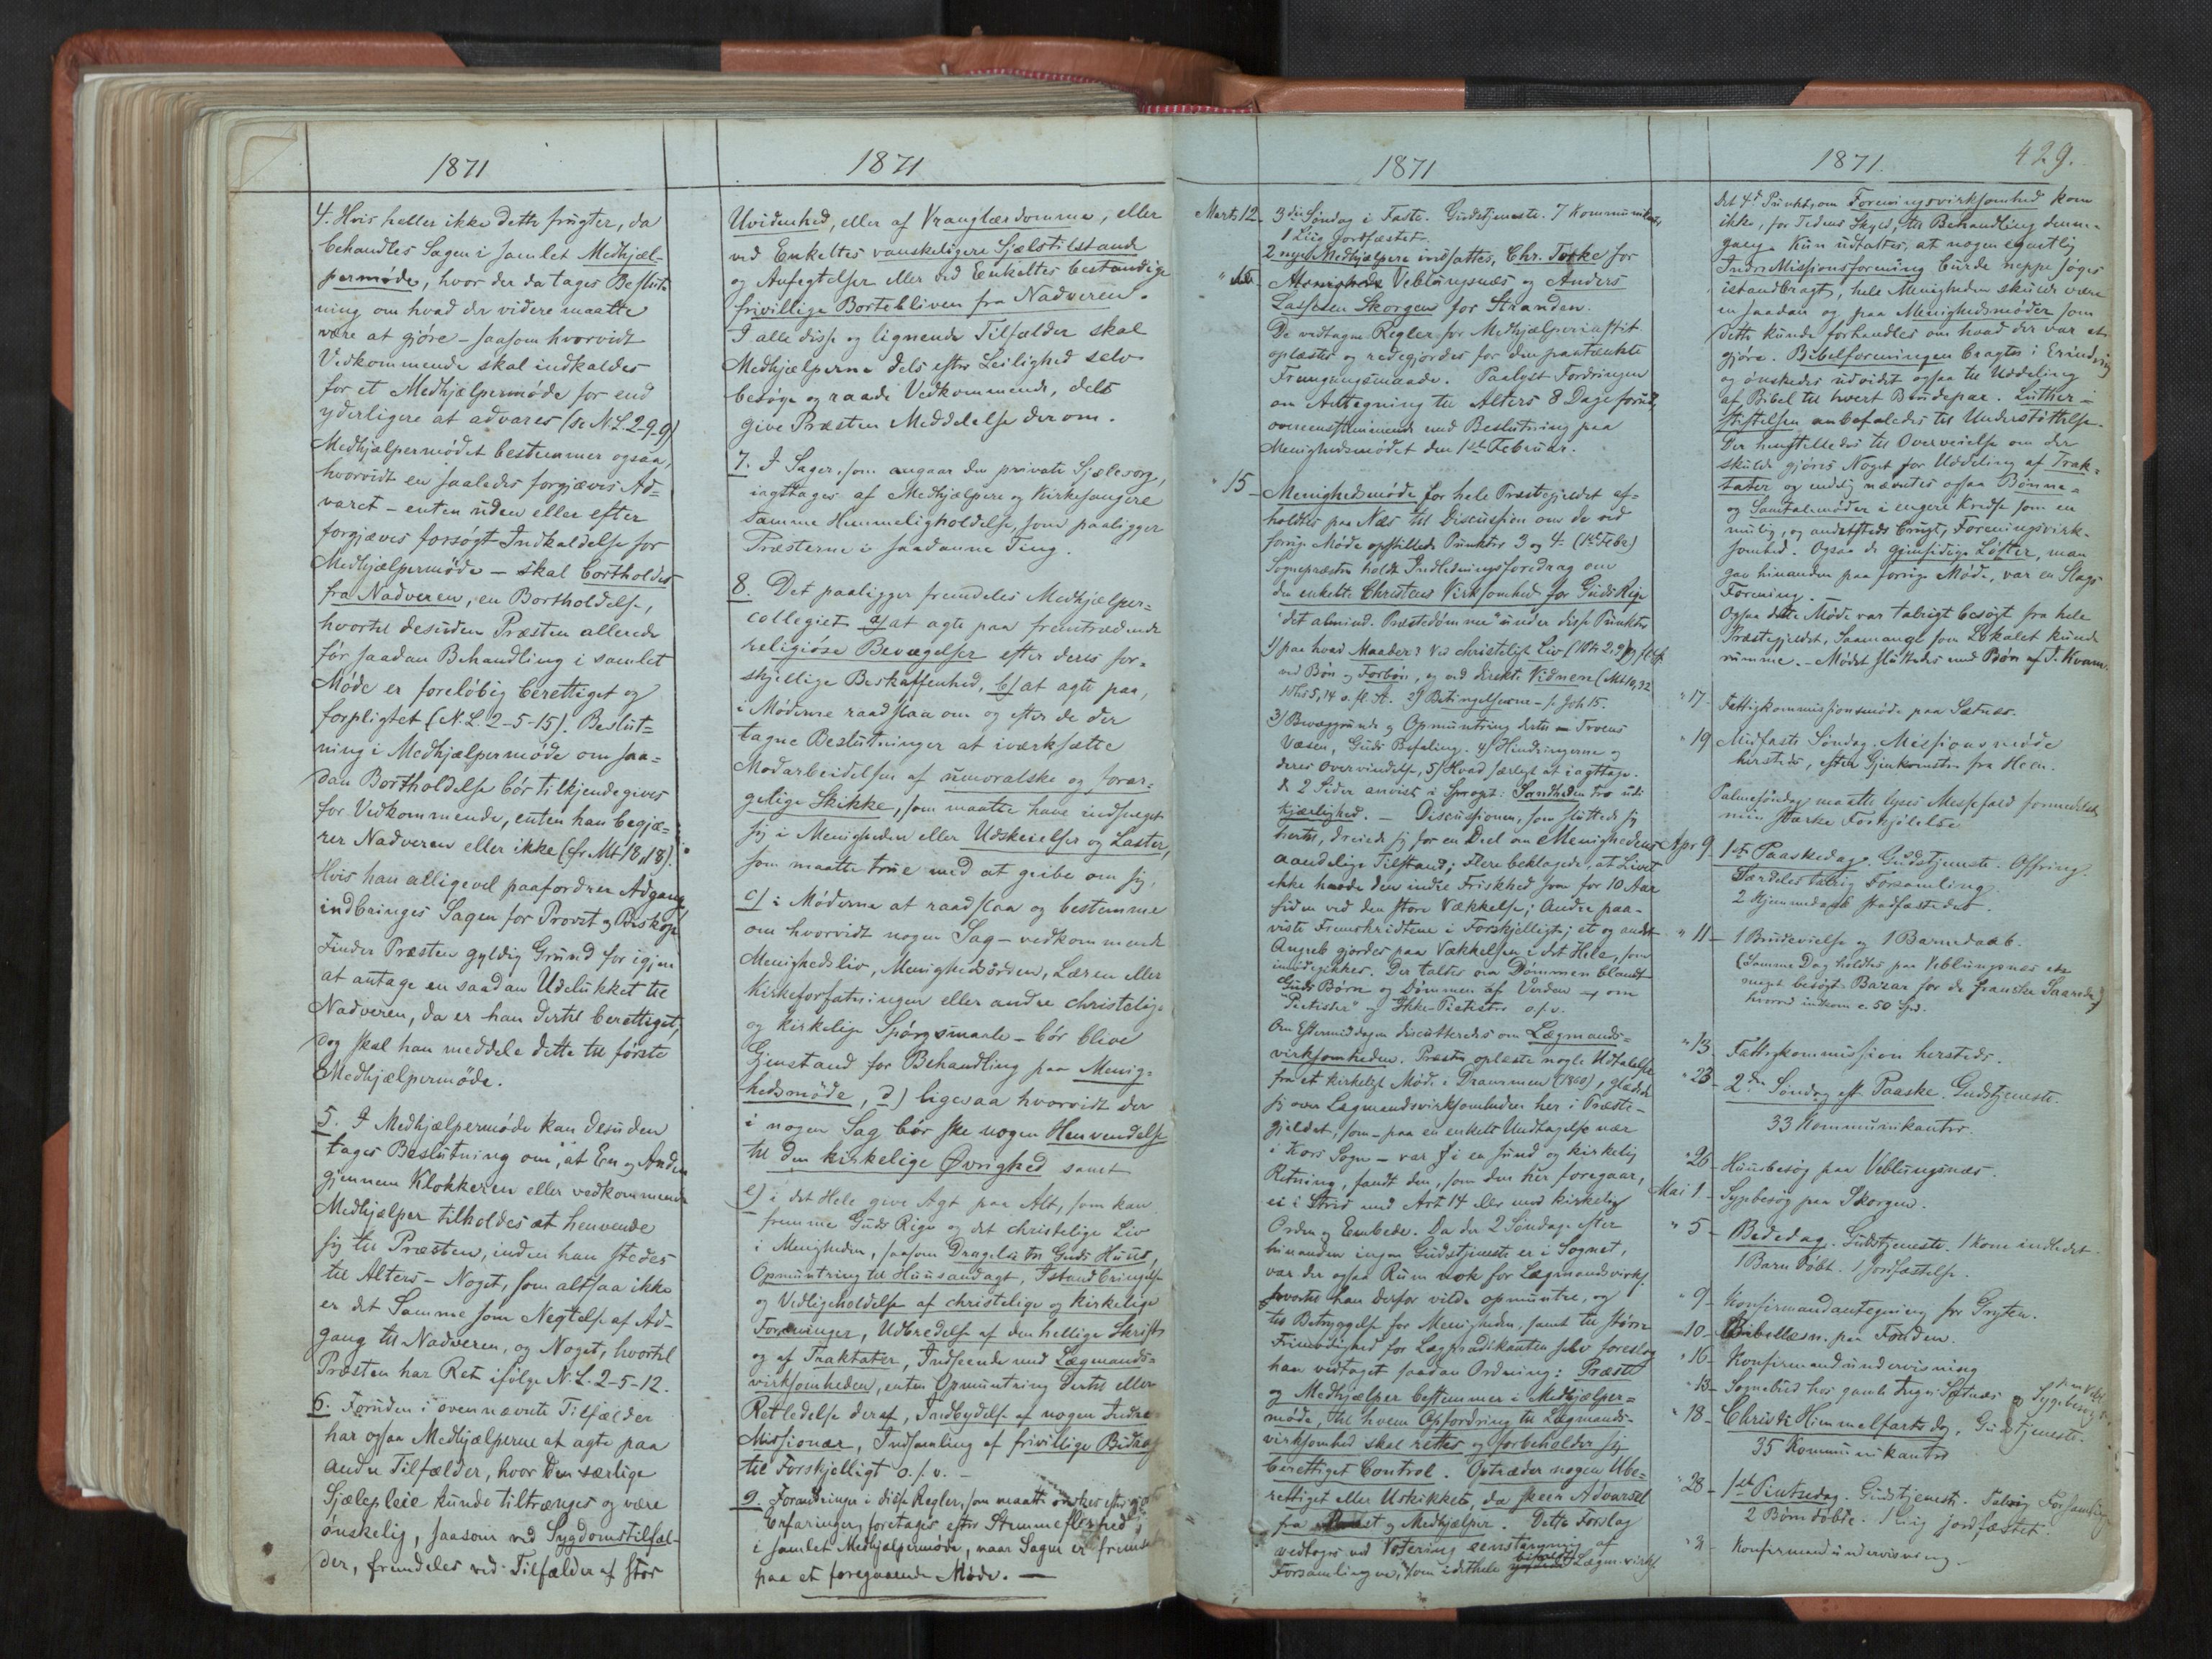 1871
4. Hvis heller ikke dette frugter, da
behandles Sagen i samlet Medhjæl-
permøde, hvor der da tages Beslut-
ning om hvad der videre maatte
være at gjøre – saasom hvorvidt
Vedkommende skal indkaldes
for et Medhjælpermøde for end
yderligere at advares (se N.L. 2-9-9)
Medhjælpermødet bestemmer ogsaa,
hvorvidt en saaledes forgjæves Ad=
varet – enten uden eller efter
forgjæves forsøgt Indkaldelse for
Medhjælpermøde – skal bortholdes
fra Nadveren, en Bortholdelse,
hvortil desuden Præsten allerede
før saadan Behandling i samlet
Møde er foreløbig berettiget og
forpligtet (N.L. 2-5-15). Beslut=
ning i Medhjælpermøde om saa=
dan Bortholdelse bør tilkjendegives
for Vedkommende, enten han begjæ=
rer Nadveren eller ikke (cfr Mt 18,18).
Hvis han alligevel paafordrer Adgang
indbringes Sagen for Provst og Biskop
Finder Præsten gyldig Grund for igjen
at antage en saadan Udelukket til
Nadveren, da er han dertil berettiget,
dog skal han meddele dette til første
Medhjælpermøde.
5. I Medhjælpermøde kan desuden
tages Beslutning om, at En og Anden
gjennem Klokkeren eller vedkommende
Medhjælper tilholdes at henvende
sig til Præsten, inden han stedes
til Alters – Noget, som altsaa ikke
er det Samme som Negtelse af Ad-
gang til Nadveren, og Noget, hvortil
Præsten har Ret ifølge N.L. 2-5-12.
6. Foruden i ovennævnte Tilfælder
har ogsaa Medhjælperne at agte paa
andre Tilfælder, hvor den særlige
Sjælepleie kunde tiltrænges og være
ønskelig, saasom ved Sygdomstilfæl-
der, fremdeles ved Tilfælder af stor
1871
Uvidenhed, eller af Vranglærdomme, eller
ved Enkeltes vanskeligere Sjælstilstand
og Anfegtelser eller ved Enkeltes bestandige
frivillige Bortebliven fra Nadveren.
I alle disse og lignende Tilfælder skal
Medhjælperne dels efter Leilighed selv
besøge og raade Vedkommende, dels
give Præsten Meddelelse derom.
7. I Sager, som angaar den private Sjælesorg,
iagttages af Medhjælpere og Kirkesangere
samme Hemmeligholdelse, som paaligger
Præsterne i saadanne Ting.
8. Det paaligger fremdeles Medhjælper=
collegiet a) at agte paa fremtrædende
religiøse Bevægelser efter deres for-
skjellige Beskaffenhed, b) at agte paa,
i Møderne raadslaa om og efter de der
tagne Beslutninger at iværksætte
Modarbeidelsen af umoralske og forar-
gelige Skikke, som maatte have indsneget
sig i Menigheden eller Udskeielser og Laster,
som maatte true med at gribe om sig,
c) i Møderne at raadslaa og bestemme
om hvorvidt nogen Sag – vedkommende
Menighedsliv, Menighedsorden, Læren eller
Kirkeforfatningen eller andre christelige
og kirkelige Spørgsmaale – bør blive
Gjenstand for Behandling paa Menig=
hedsmøde, d) ligesaa hvorvidt der
i nogen Sag bør ske nogen Henvendelse
til den kirkelige Øvrighed samt
e) i det Hele give Agt paa Alt, som kan
fremme Guds Rige og det christelige Liv
i Menigheden, saasom Dragelse til Guds Huus,
Opmuntring til Huusandagt, Istandbringelse
og Vedligeholdelse af christelige og kirkelige
Foreninger, Udbredelse af den hellige Skrift
og af Traktater, Indseende med Lægmands=
virksomheden, enten Opmuntring dertil eller
Retledelse deraf, Indbydelse af nogen Indre-
Missionær, Indsamling af frivillige Bidrag
til Forskjelligt o.s.v. –
9. Forandringer i disse Regler, som maatte ønskes efter
Erfaringer, foretages efter Stemmeflerhed
i samlet Medhjælpermøde, naar Sagen er fremsat
paa et foregaaende Møde. —
1871
Marts 12 – 3die Søndag i Faste. Gudstjeneste. 7 Kommunikanter,
1 Liig jordfæstet.
2 nye Medhjælpere indsattes, Chr. Torke for
Veblungsnæs og Anders
Lassesen Skorgen for Stranden.
De vedtagne Regler for Medhjælperinstit.
oplæstes og redegjordes for den paatænkte
Fremgangsmaade. Paalyst Fordringen
om Antegning til Alters 8 Dage forud,
overensstemmende med Beslutning paa
Menighedsmødet den 1ste Februar.
" 15 – Menighedsmøde for hele Præstegjeldet af-
holdtes paa Næs til Discussion om de ved
forrige Møde opstillede Punkter 3 og 4. (1ste Febr)
Sognepræsten holdt Indledningsforedrag om
den enkelte Christens Virksomhed for Guds Rige
"det almind. Præstedømme" under disse Punkter
1) paa hvad Maader? Ved christeligt Liv (1 Ptr 2,9)
ved Bøn og Forbøn, og ved direkte Vidnen (Mt 10,32
1 Ths 5,14 o. fl. St. 2) Betingelserne – s. Joh 15.
3) Bevæggrunde og Opmuntring dertil – Troens
Væsen, Guds Befaling. 4) Hindringerne og
deres Overvindelse, 5) Hvad særligt at iagttage.
de 2 Sider anvist i Sproget: Sandheden tro udi
Kjærlighed. – Discussionen, som sluttede sig
hertil, dreiede sig for en Deel om Menighedens
aandelige Tilstand; Flere beklagede, at Livet
ikke havde den indre Friskhed som for 10 Aar
siden ved den store Vækkelse; Andre paa-
viste Fremskridtene i Forskjelligt; et og andet
Angreb gjordes paa Vækkelsen i det Hele, som
imødegikkes. Der taltes om Dømmen blandt
Guds Børn og Dømmen af Verden – om
"Pietister" og Ikke-Pietister o.s.v.
Om Eftermiddagen discutteredes om Lægmands=
virksomheden. Præsten oplæste nogle Udtalelser
fra et kirkeligt Møde i Drammen (1860), glædede
sig over Lægmandsvirksomheden her i Præste-
gjeldet, som – paa en enkelt Undtagelse nær
i Kors Sogn – var i en sund og kirkelig
Retning, fandt den, som den her foregaar,
ei i Strid med Art 14 eller med kirkelig
Orden og Embede. Da der 2 Søndage efter
hinanden ingen Gudstjeneste er i Sognet,
var der ogsaa Rum nok for Lægmandsvirks.
hvortil han derfor vilde opmuntre, og
til Betryggelse for Menigheden, samt til større
Frimodighed for Lægprædikanten selv foreslog
han vedtaget saadan Ordning: Præst
og Medhjælper bestemmer i Medhjælper=
møde, til hvem Opfordring til Lægmands-
virksomhed skal rettes og forbeholder sig
berettiget Control. Optræder nogen Ube=
rettiget eller Uskikket, da skeer Advarsel
fra Præst og Medhjælper. Dette Forslag
vedtoges ved Votering eenstemmig af
Forsamlingen, som i det hele bifaldt Lægm.virks.
1871. 429.
Det 4de Punkt, om Foreningsvirksomhed kom
ikke, for Tidens Skyld, til Behandling denne-
gang. Kun udtaltes, at nogen egentlig
Indre Missionsforening burde neppe søges
istandbragt, hele Menigheden skulde være
en saadan og paa Menighedsmøder som
dette kunde forhandles om hvad der var at
gjøre. Bibelforeningen bragtes i Erindring
og ønskedes udvidet ogsaa til Uddeling
af Bibel til hvert Brudepar. Luther-
stiftelsen anbefaledes til Understøttelse.
Der henstilledes til Overveielse om der
skulde gjøres Noget for Uddeling af Trak=
tater og endelig nævntes ogsaa Bønne=
og Samtalemøder i engere Kredse som en
mulig, og andetsteds brugt, Foreningsvirk-
somhed. Ogsaa de gjensidige Løfter, man
gav hinanden paa forrige Møde, var en Slags
Forening. –
Ogsaa dette Møde var talrigt besøgt fra hele
Præstegjeldet, saamange som Lokalet kunde
rumme. – Mødet sluttedes med Bøn af J. Kvam.
" 17 – Fattigkommissionsmøde paa Sætnes.
" 19 Midfaste Søndag. Missionsmøde
hersteds, efter Gjenkomsten fra Hem.
Palmesøndag maatte lyses Messefald formedelst
min stærke Forkjølelse
Apr 9 – 1ste Paaskedag. Gudstjeneste. Offring.
Særdeles talrig Forsamling.
2 Hjemmedøbte stadfæstedes
" 11 – 1 Brudevielse og 1 Barnedaab.
(Samme Dag holdtes paa Veblungsnæs et
meget besøgt Bazar for de franske Saarede,
hvorved indkom c. 50 Spd.
" 13 – Fattigkommission hersteds.
" 23 – 2den Søndag eft Paaske. Gudstjeneste.
33 Kommunikanter.
" 26 – Huusbesøg paa Veblungsnæs.
Mai 1 – Sygebesøg paa Skorgen.
" 5 – Bededag. Gudstjeneste. 1 Kone indledet.
1 Barn døbt. 1 Jordfæstelse.
" 9 – Konfirmandantegning for Gryten.
10 – Bibellæsn. paa
" 16 – Konfirmandundervisning
" 13 – Sognebud hos gamle Sætnæs og Sygebesøg
" 18 – Christi Himmelfarts dg. Gudstjeneste.
35 Kommunikanter
" 28 – 1ste Pintsedag. Gudstjeneste. Talrig Forsamling
2 Børn døbte. 1 Liig jordfæstet.
" 3 – Konfirmandundervisning –